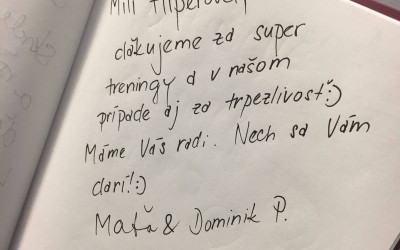 Milí
ďakujeme za super
tréningy a v našom
prípade aj za trpezlivosť :)
Máme Vás radi. Nech sa Vám
darí! :)
Maťa & Dominik P.